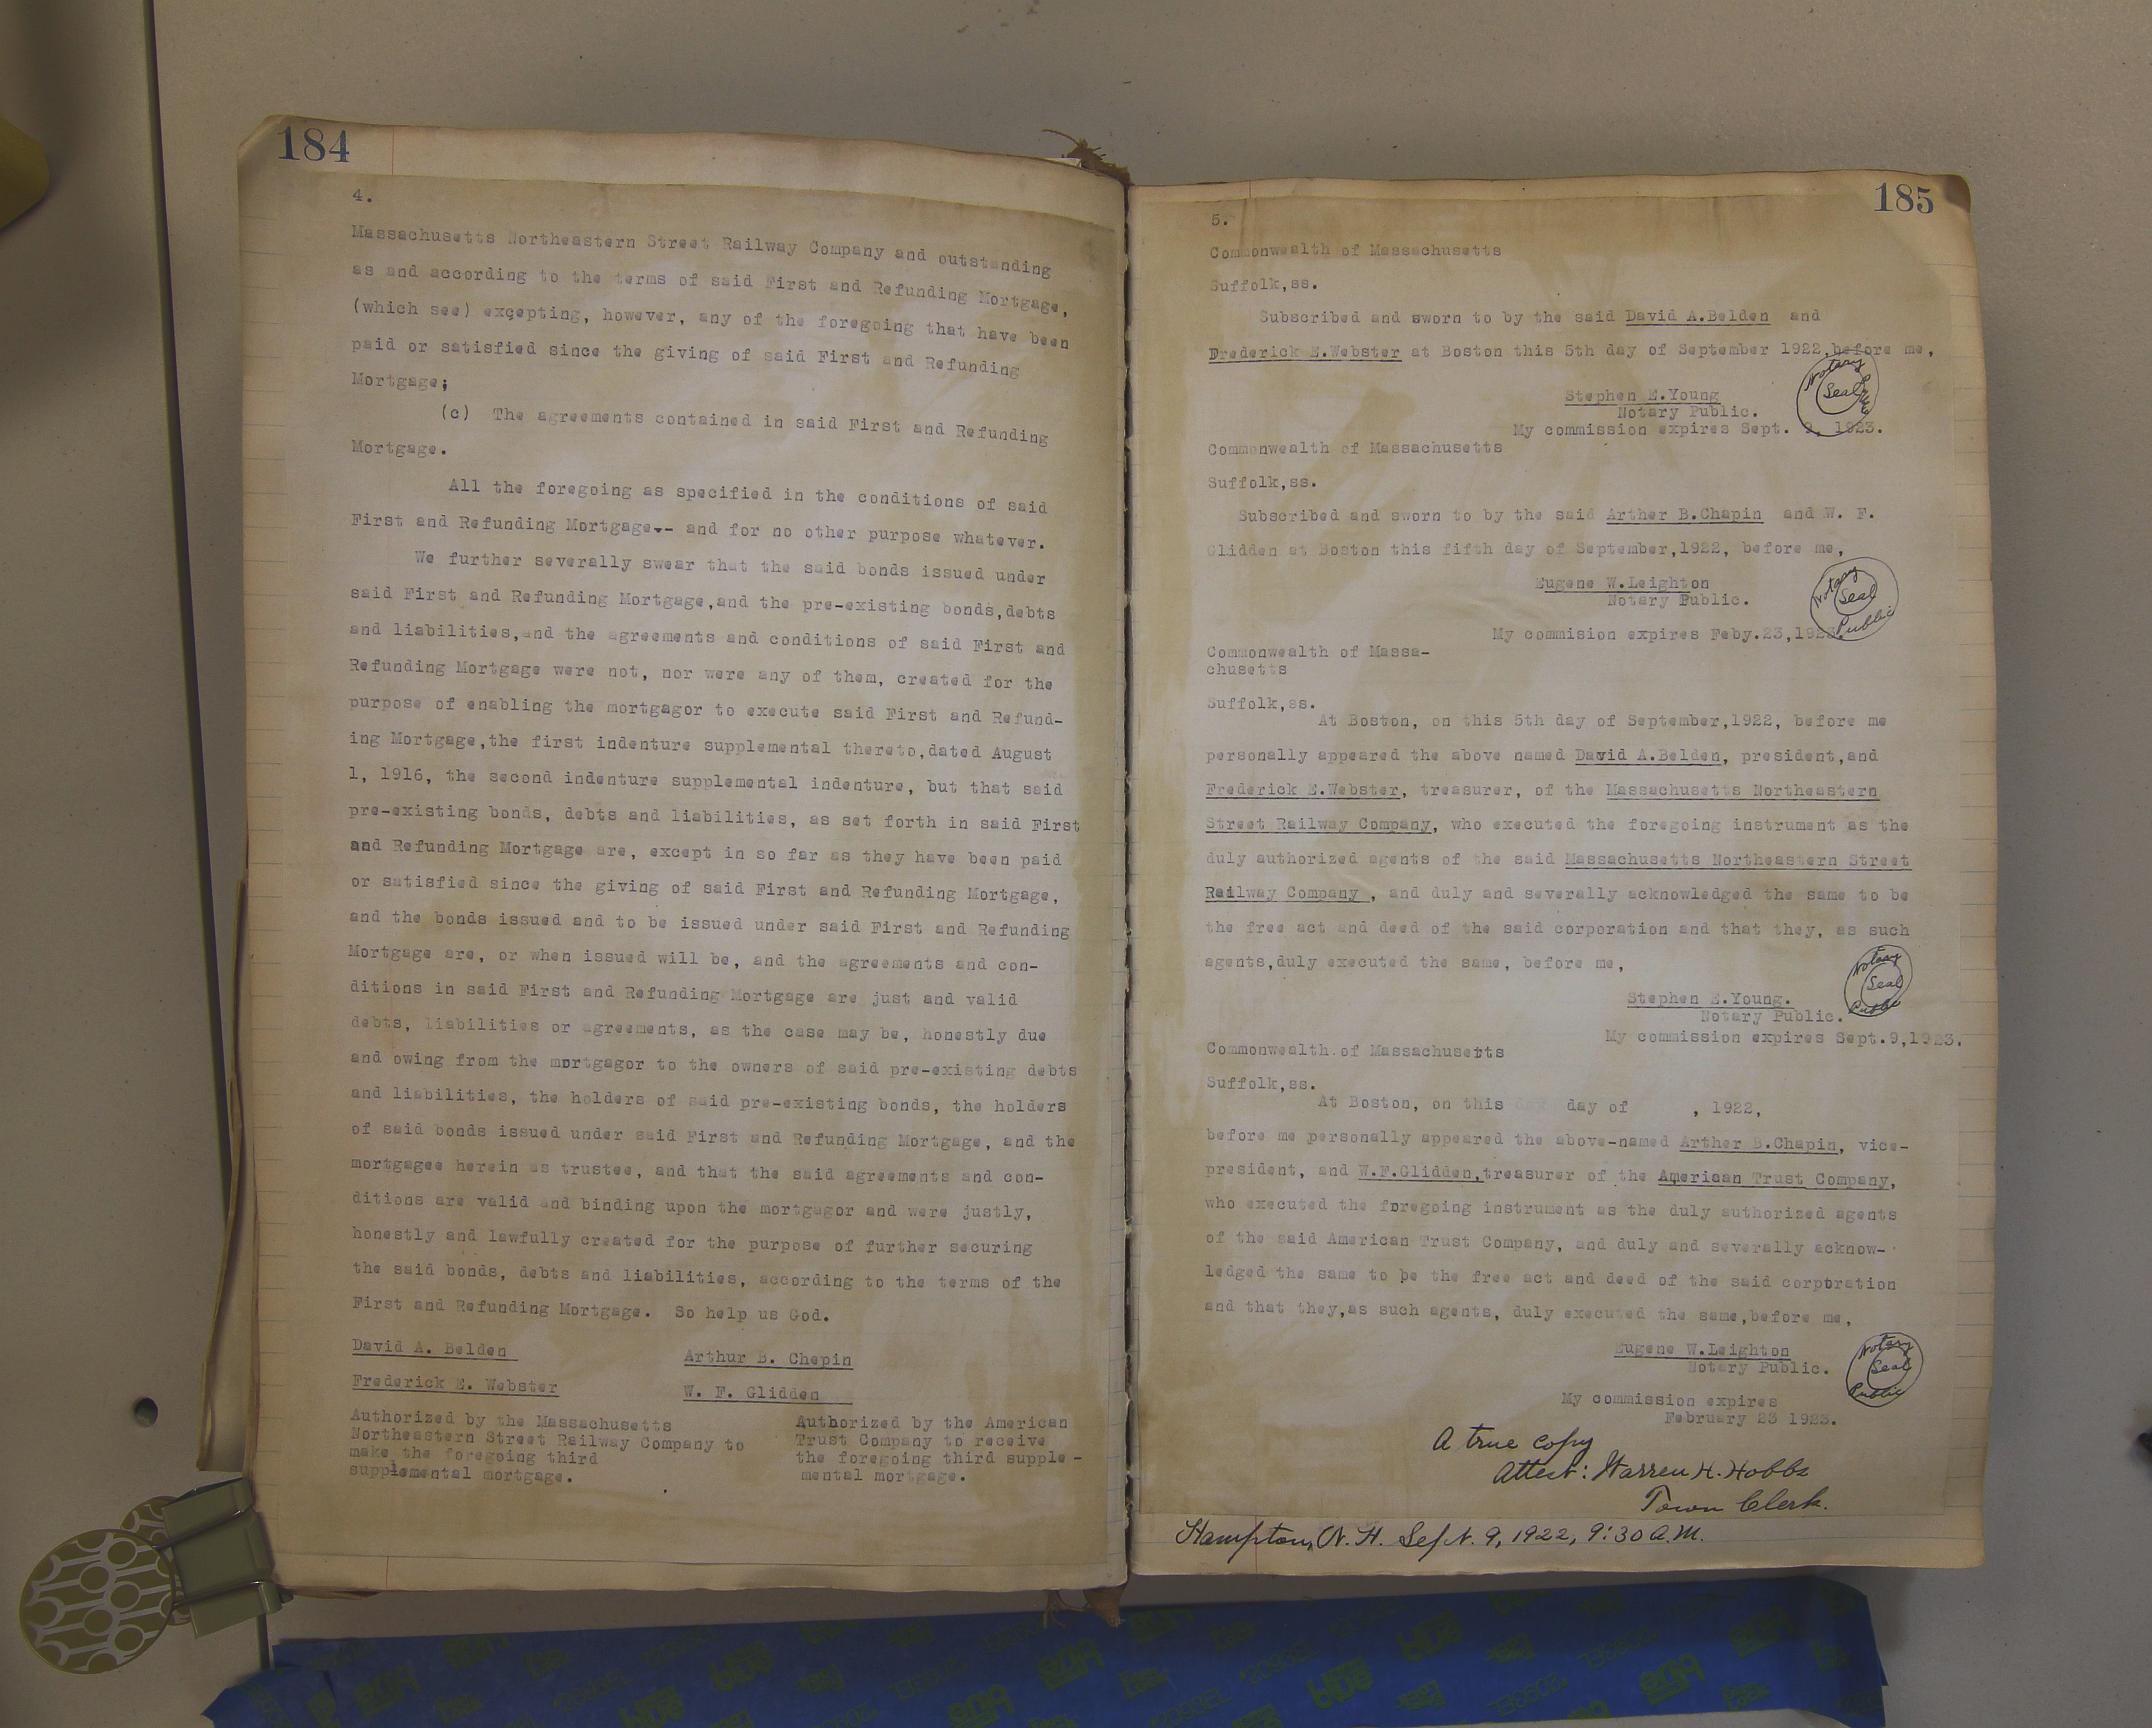 184
4.
Massachusetts Northeastern Street Railway Company and outstanding
as and according to the terms of said First and Refunding Mortgage,
(which see) excepting, however, any of the foregoing that have been
paid or satisfied since the giving of said First and Refunding
Mortgage;
(c) The agreements contained in said First and Refunding
Mortgage.
All the foregoing as specified in the conditions of said
First and Refunding Mortgage-- and for no other purpose whatever.
We further severally swear that the said bonds issued under
said First and Refunding Mortgage,and the pre-existing bonds,debts
and liabilities,and the agreements and conditions of said First and
Refunding Mortgage were not, nor were any of them, created for the
purpose of enabling the mortgagor to execute said First and Refund-
ing Mortgage,the first indenture supplemental thereto,dated August
1, 1916, the second indenture supplemental indenture, but that said
pre-existing bonds, debts and liabilities, as set forth in said First
and Refunding Mortgage are, except in so far as they have been paid
or satisfied since the giving of said First and Refunding Mortgage,
and the bonds issued and to be issued under said First and Refunding
Mortgage are, or when issued will be, and the agreements and con-
ditions in said First and Refunding Mortgage are just and valid
debts, liabilities or agreements, as the case may be, honestly due
and owing from the mortgagor to the owners of said pre-existing debts
and liabilities, the holders of said pre-existing bonds, the holders
of said bonds issued under said First and Refunding Mortgage, and the
mortgagee herein as trustee, and that the said agreements and con-
ditions are valid and binding upon the mortgagor and were justly,
honestly and lawfully created for the purpose of further securing
the said bonds, debts and liabilities, according to the terms of the
First and Refunding Mortgage. So help us God.
David A. Belden Arthur B. Chapin
Frederick E. Webster W. F. Glidden
Authorized by the Massachusetts Authorized by the American
Northeastern Street Railway Company to Trust Company to receive
make the foregoing third the foregoing third supple-
supplemental mortgage. mental mortgage.
185
5.
Commonwealth of Massachusetts
Suffolk,ss.
Subscribed and sworn to by the said David A.Belden and
Frederick E.Webster at Boston this 5th day of September 1922,before me,
Stephen E.Young
Notary Public.
Notary Public Seal
My commission expires Sept. 9, 1923.
Commonwealth of Massachusetts
Suffolk,ss.
Subscribed and sworn to by the said Arther B.Chapin and W. F.
Glidden at Boston this fifth day of September,1922, before me,
Eugene W.Leighton
Notary Public.
Notary Seal Public
My commision expires Feby.23,1923.
Commonwealth of Massa-
chusetts
Suffolk,ss.
At Boston, on this 5th day of September,1922, before me
personally appeared the above named David A.Belden, president,and
Frederick E.Webster, treasurer, of the Massachusetts Northeastern
Street Railway Company, who executed the foregoing instrument as the
duly authorized agents of the said Massachusetts Northeastern Street
Railway Company , and duly and severally acknowledged the same to be
the free act and deed of the said corporation and that they, as such
agents,duly executed the same, before me,
Stephen E.Young.
Notary Public.
Notary Seal Public
My commission expires Sept.9,1923.
Commonwealth of Massachusetts
Suffolk,ss.
At Boston, on this day of , 1922,
before me personally appeared the above-named Arther B.Chapin, vice-
president, and W.F.Glidden,treasurer of the American Trust Company,
who executed the foregoing instrument as the duly authorized agents
of the said American Trust Company, and duly and severally acknow-
ledged the same to be the free act and deed of the said corporation
and that they,as such agents, duly executed the same,before me,
Eugene W.Leighton
Notary Public.
Notary Seal Public
My commission expires
February 23 1923.
A true copy
Attest: Warren H. Hobbs
Town Clerk.
Hampton, N. H. Sept. 9, 1922, 9:30 A.M.